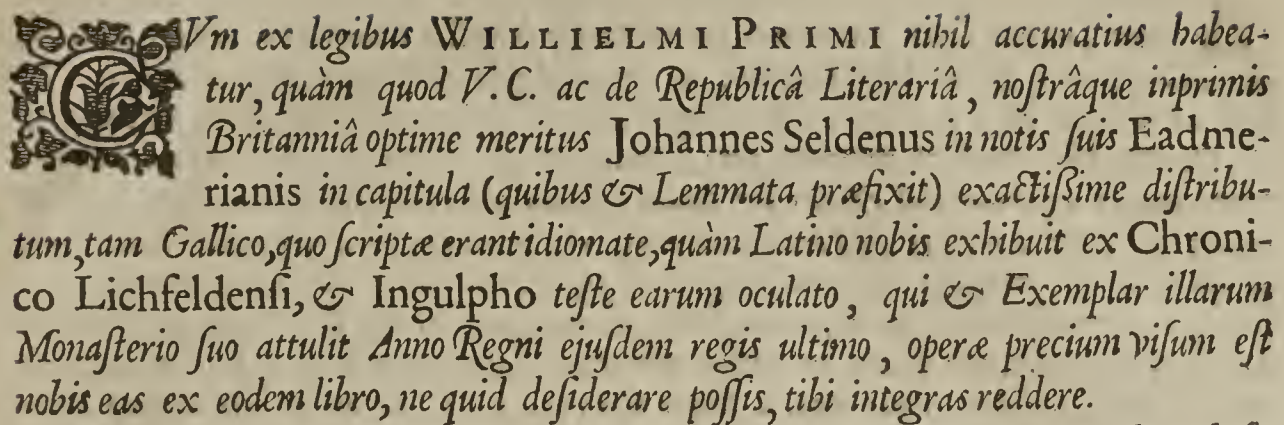 CVm ex legibus WILLIELMI PRIMI nihil accuratius habea-
tur, quàm quod V. C. ac de Republicâ Literariâ, noſtrâque inprimis
Britanniâ optime meritus Johannes Seldenus in notis ſuis Eadme-
rianis in capitula (quibus & Lemmata præfixit) exactiſſime diſtribu-
tum, tam Gallico, quo ſcriptæ erant idiomate, quàm Latino nobis exhibuit ex Chroni-
co Lichfeldenſi, & Ingulpho teſte earum oculato, qui & Exemplar illarum
Monaſterio ſuo attulit Anno Regni ejuſdem regis ultimo, operæ precium viſum eſt
nobis eas ex eodem libro, ne quid deſiderare poſſis, tibi integras reddere.